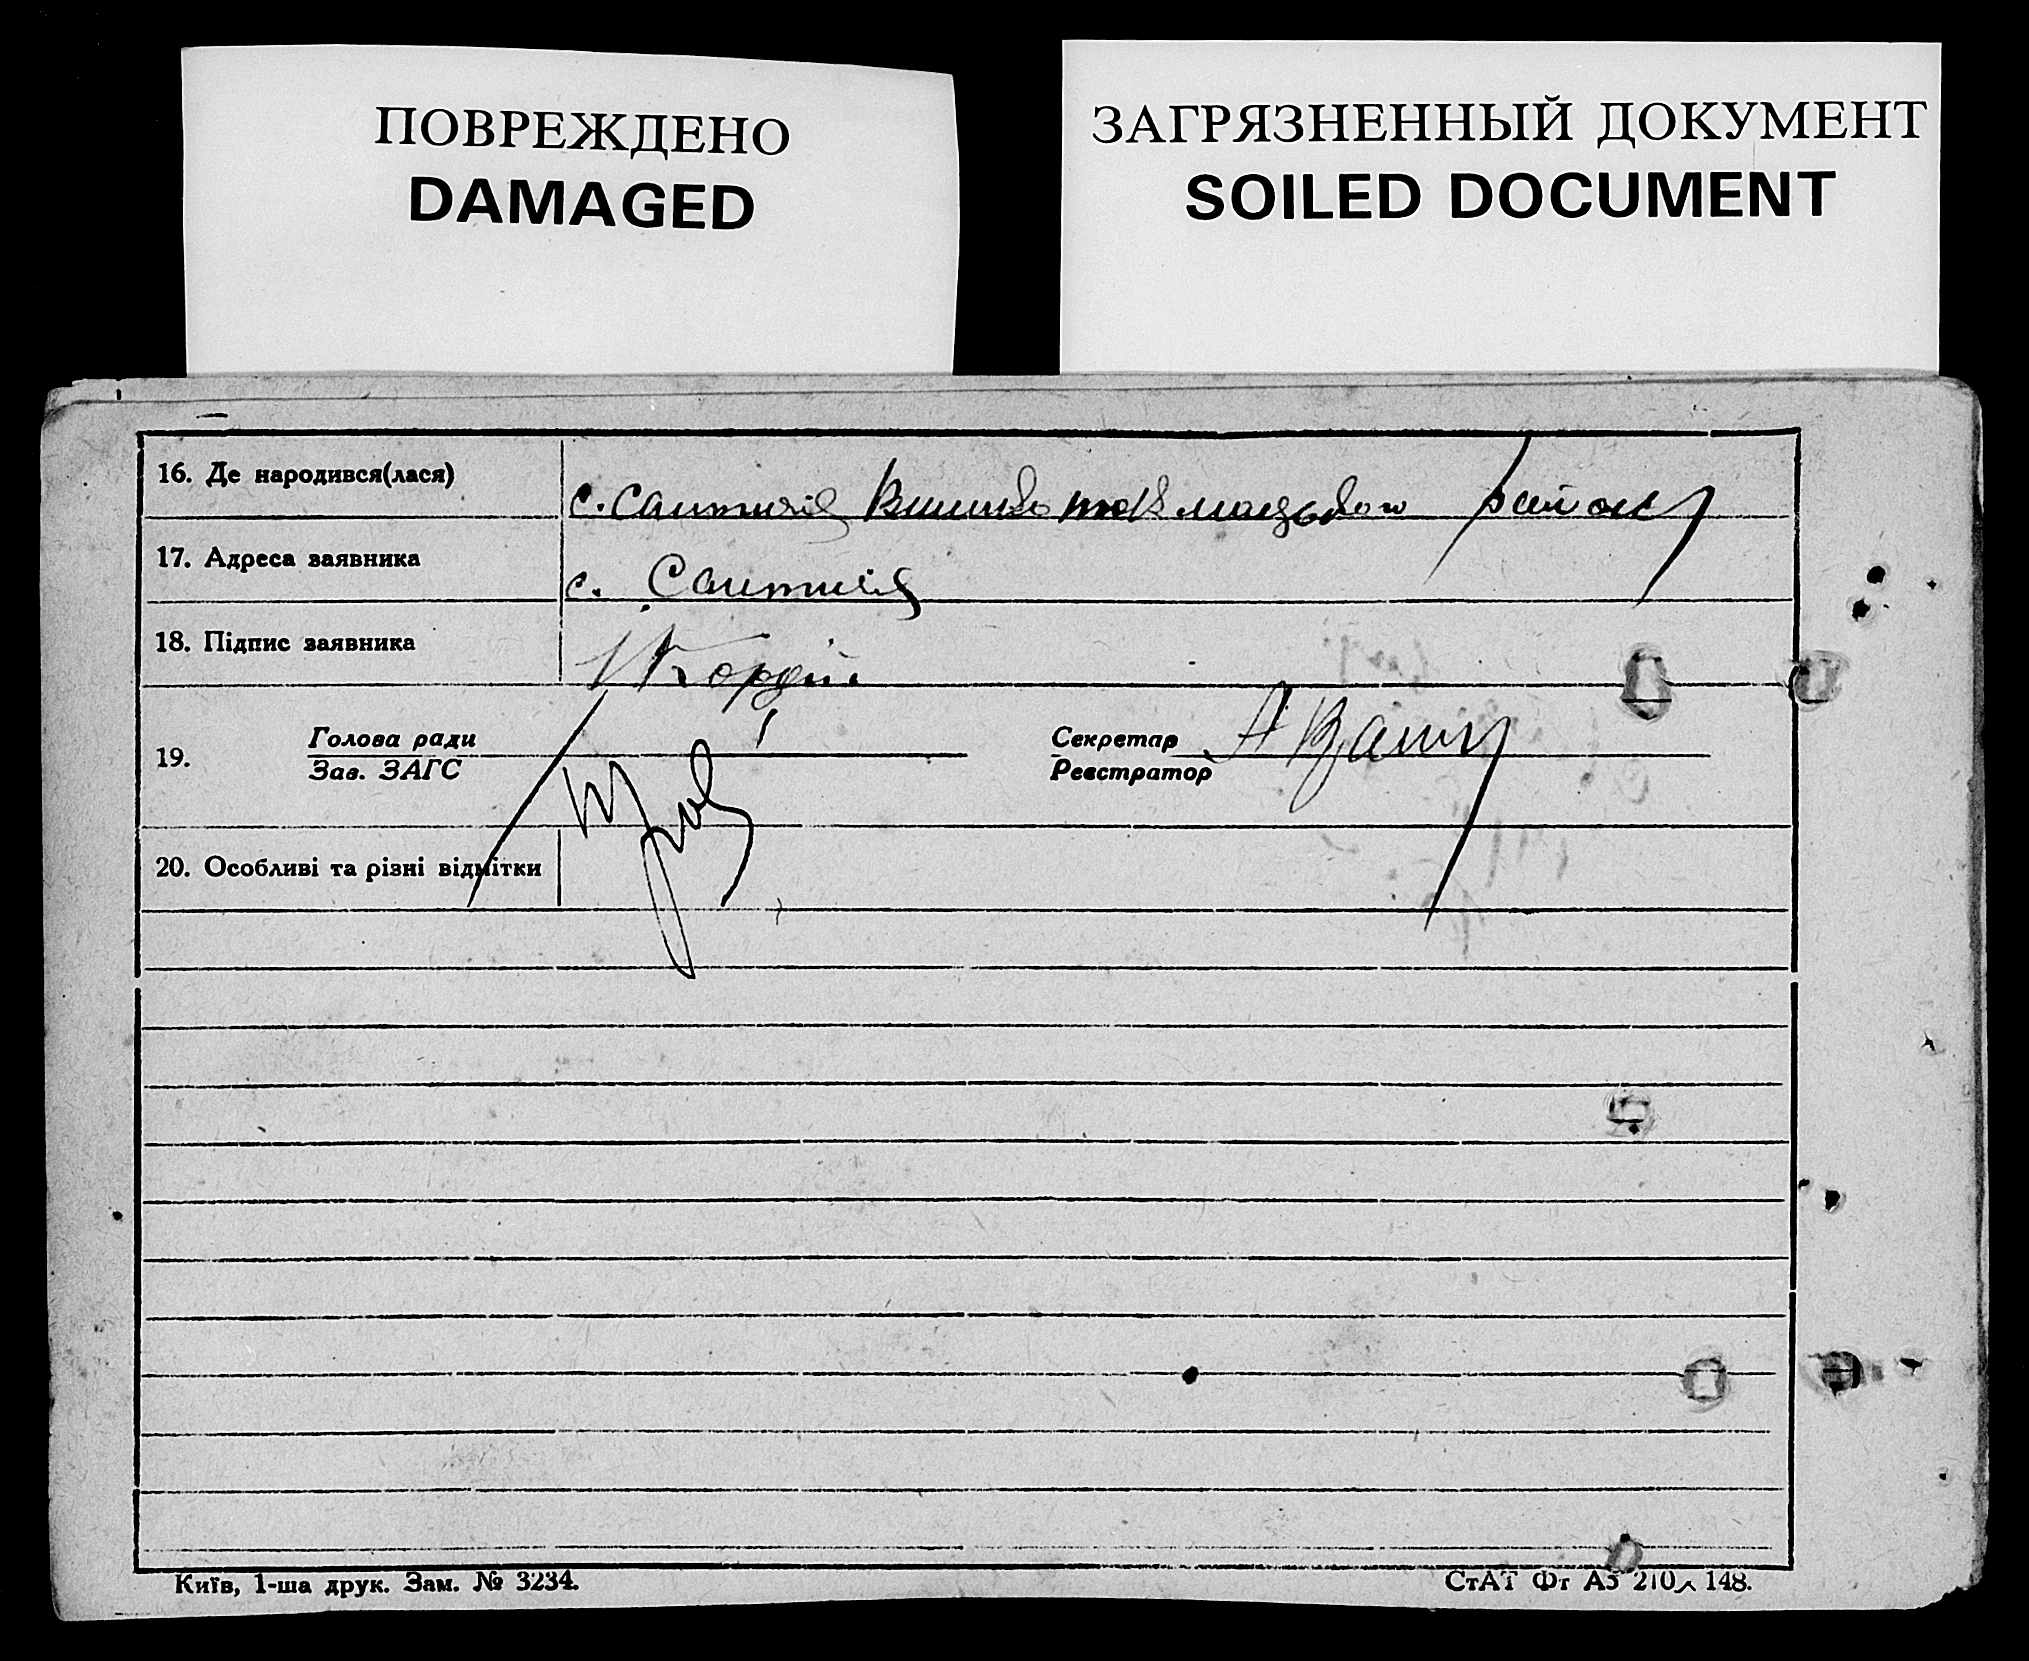 ПОВРЕЖДЕНО
DAMAGED
ЗАГРЯЗНЕННЫЙ ДОКУМЕНТ
SOILED DOCUMENT
16. Де народився(лася) с. району
17. Адреса заявника с.
18. Підпис заявника
19. Голова ради Секретар
Зав. ЗАГС Реєстратор
20. Особливі та різні відмітки
Київ, 1-ша друк. Зам. № 3234.
СтАТ Фт А5 210 148.